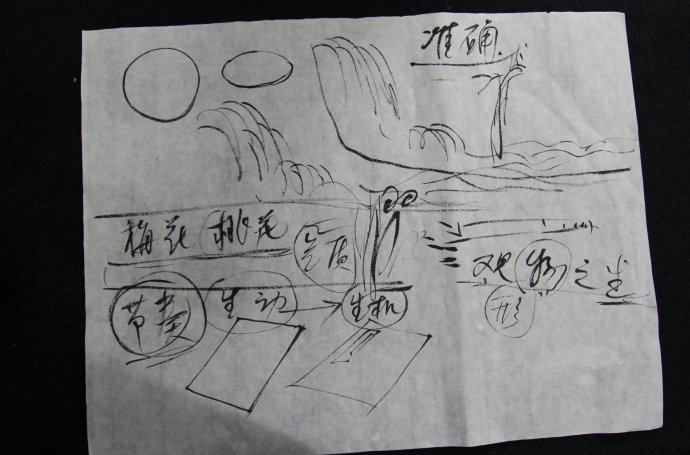 准确
梅花 桃花 气质
观物之生
节奏 生动 → 生机
形